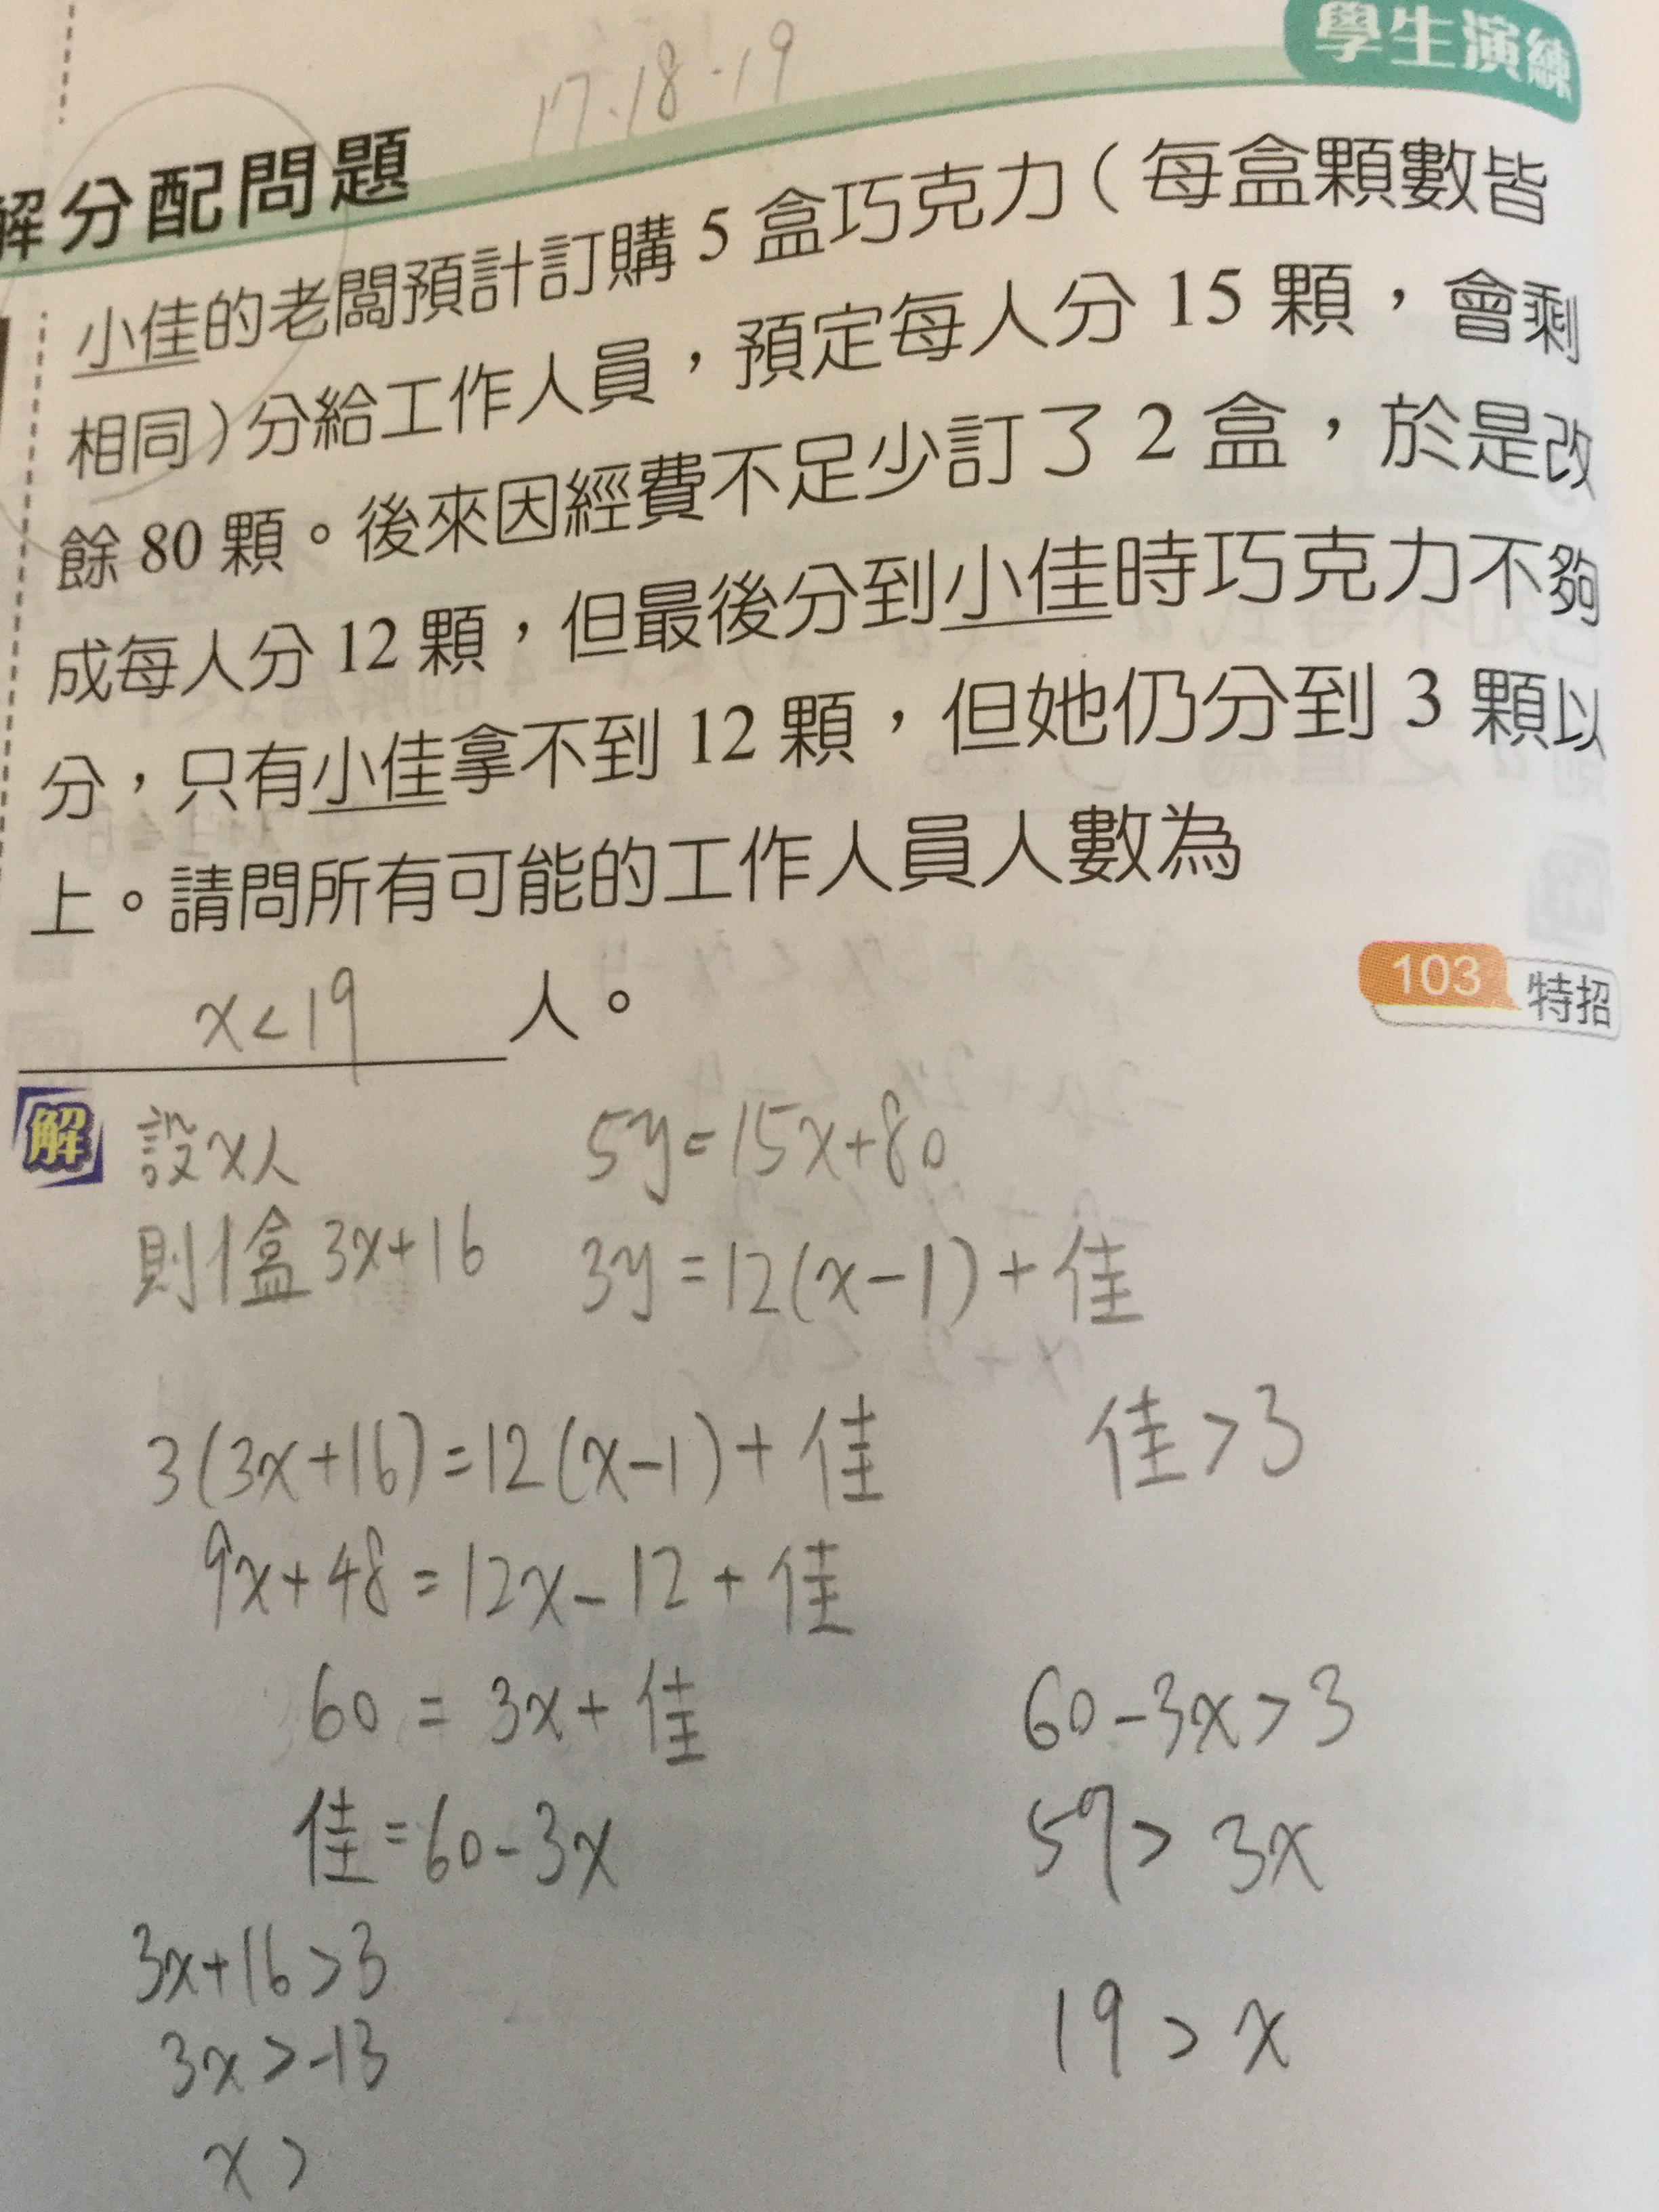 學生演練
17.18.19
解分配問題
小佳的老闆預計訂購5盒巧克力(每盒顆數皆
相同)分給工作人員,預定每人分15顆,會剩
餘80顆。後來因經費不足少訂了2盒,於是改
成每人分12顆,但最後分到小佳時巧克力不夠
分,只有小佳拿不到12顆,但她仍分到3顆以
上。請問所有可能的工作人員人數為
x<19 人。
103 特招
解 設x人
則1盒3x+16
5y=15x+80
3y=12(x-1)+佳
3(3x+16)=12(x-1)+佳
佳>3
9x+48=12x-12+佳
60=3x+佳
佳=60-3x
60-3x>3
57>3x
19>x
3x+16>3
3x>-13
x>